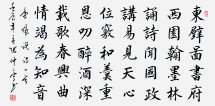 東壁圖書府
西園翰墨林
誦詩聞國政
講易見天心
位竊和羹重
恩叨醉酒深
載歌春興曲
情竭為知音